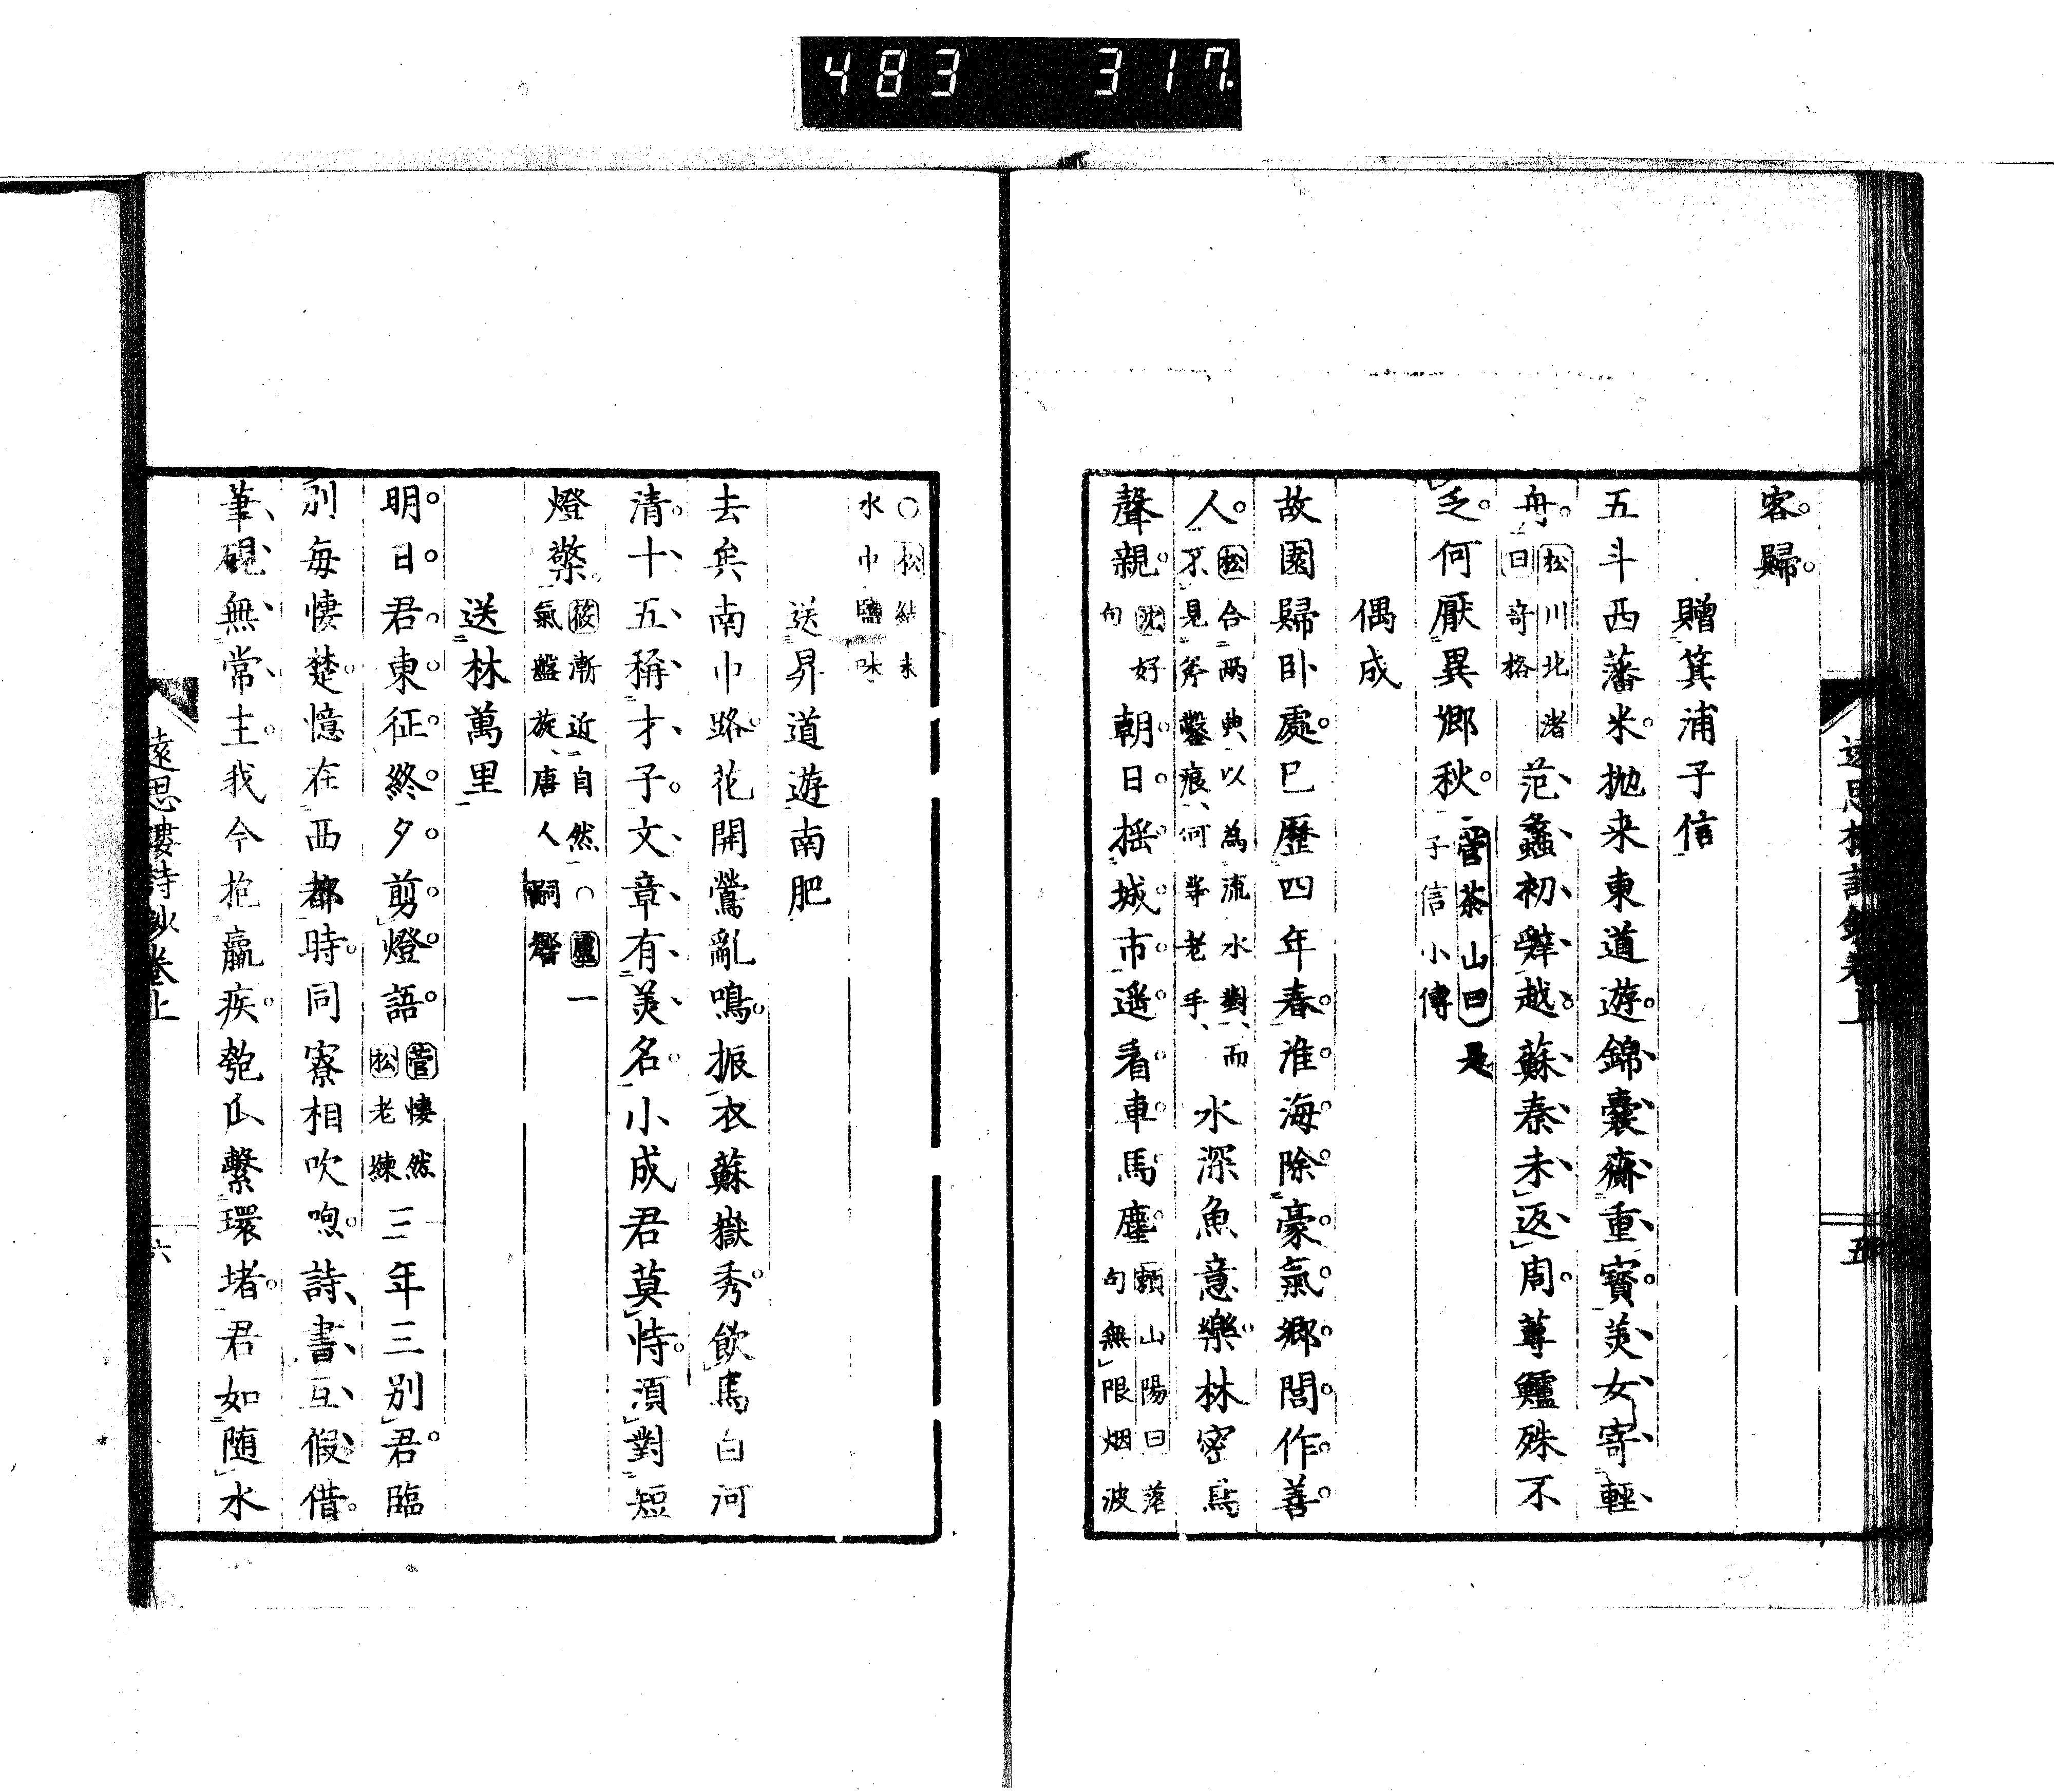 483 317
客歸
贈箕浦子信
五斗西藩米抛来東道遊錦囊齎重寶美女寄輕
舟
松川北渚
曰奇格
范蠡初辭越蘇秦未返周蓴鱸殊不
乏何厭異郷秋
菅茶山曰是
子信小傳
偶成
故園歸臥處已歷四年春淮海除豪氣郷閭作善
人
松合两典以為流水對而
不見斧鑿痕何等老手
水深魚意樂林密鳥
聲親
沈好
句
朝日搖城市遥看車馬塵
頼山陽曰落
句無限烟波
遠思樓詩鈔卷上
五
○松結末
水巾鹽味
送昇道遊南肥
去矣南巾路花開鶯亂鳴振衣蘇嶽秀飲馬白河
清十五稱才子文章有美名小成君莫恃須對短
燈檠
筱漸近自然○一
氣盤旋唐人嗣響
送林萬里
明日君東征終夕剪燈語
菅悽然
松老練
三年三別君臨
別每悽楚憶在西都時同寮相吹呴詩書互假借
筆硯無常主我今抱羸疾匏瓜繫環堵君如随水
遠思樓詩鈔卷上
六